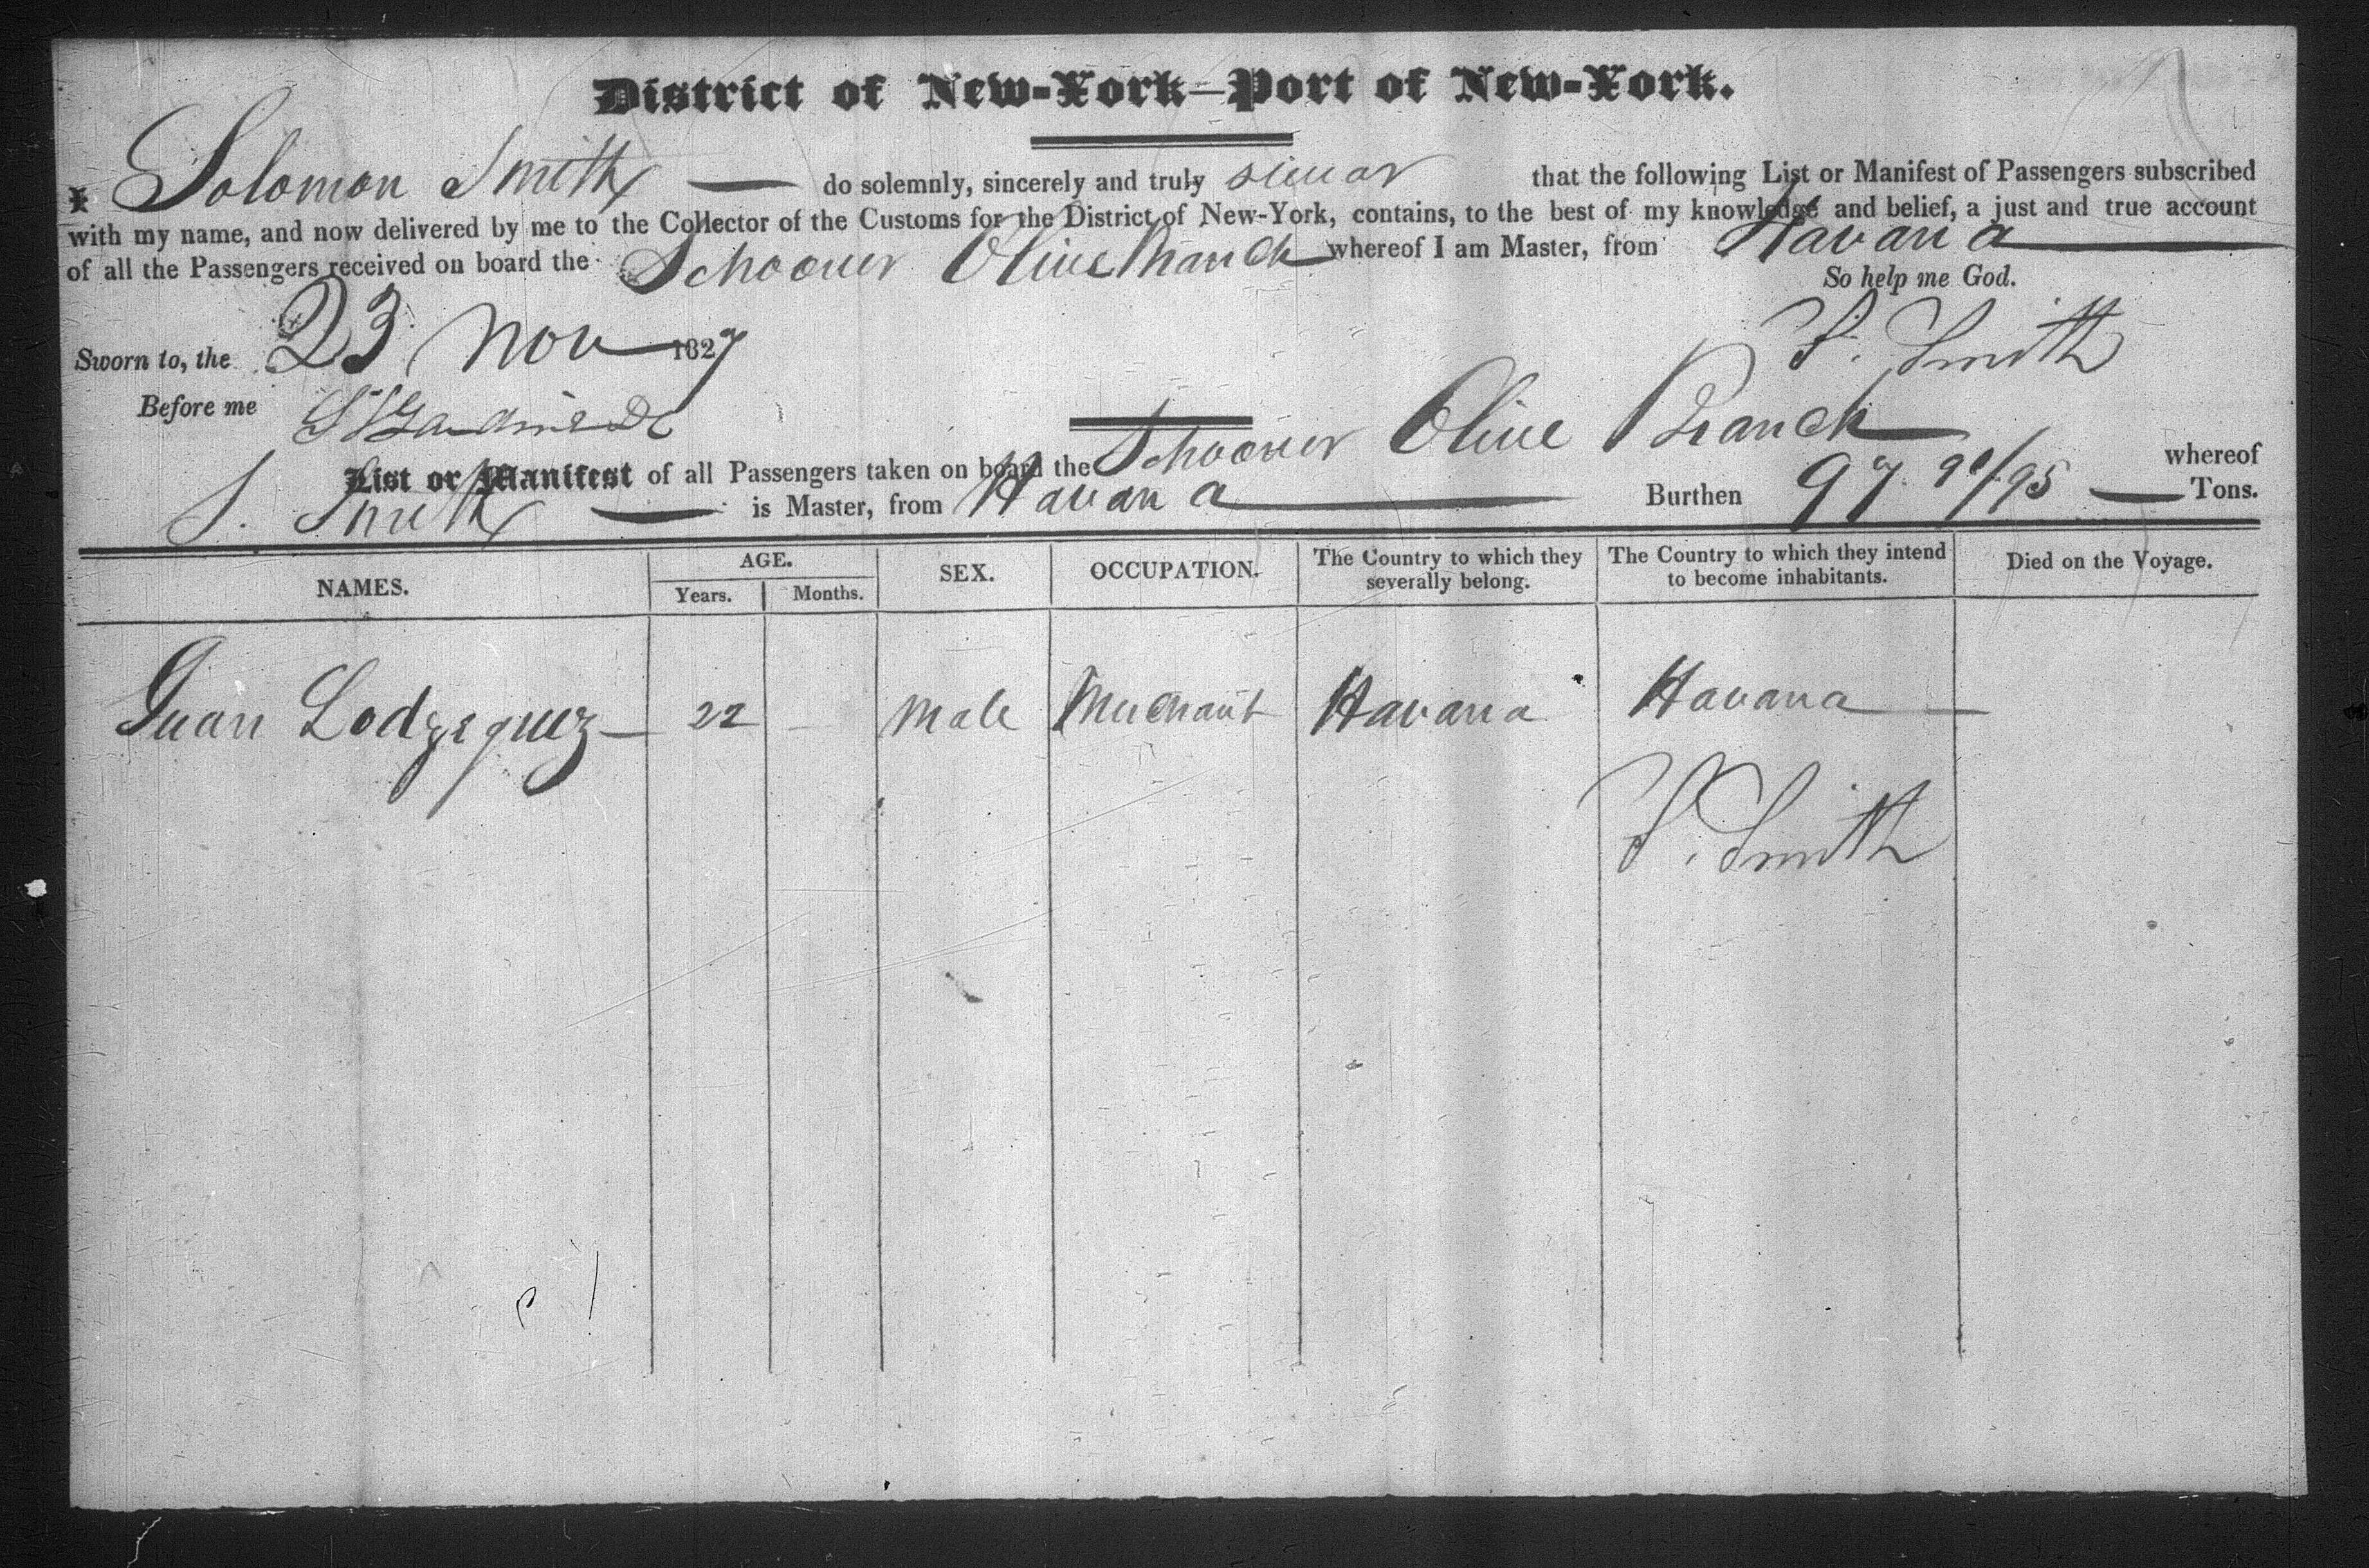 District of New-York—Port of New-York.
I Solomon Smith — do solemnly, sincerely and truly swear that the following List or Manifest of Passengers subscribed
with my name, and now delivered by me to the Collector of the Customs for the District of New-York, contains, to the best of my knowledge and belief, a just and true account
of all the Passengers received on board the Schooner Olive Branch whereof I am Master, from Havana
So help me God.
Sworn to, the 23 Nov 1827
S. Smith
Before me
List or Manifest of all Passengers taken on board the Schooner Olive Branch whereof
S. Smith — is Master, from Havana Burthen 97 90/95 — Tons.
NAMES. AGE. SEX. OCCUPATION. The Country to which they severally belong. The Country to which they intend to become inhabitants. Died on the Voyage.
Years. Months.
Juan 22 - Male Merchant Havana Havana
S. Smith